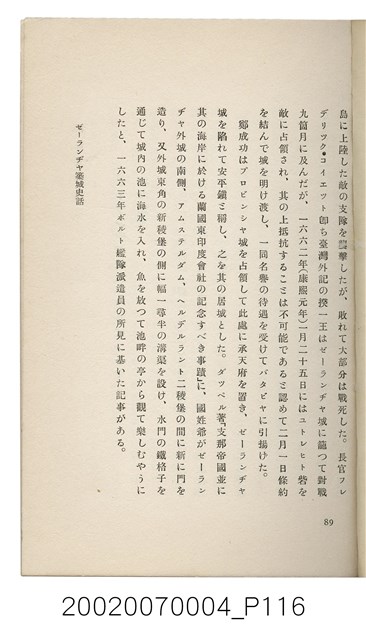 島に上陸した敵の支隊を襲擊したが、敗れて大部分は戰死した。長官フレ
デリツク・コイエツト卽ち臺灣外記の揆一王はゼーランヂヤ城に籠つて對戰
九箇月に及んだが、一六六二年（康熙元年）一月二十五日にはユトレヒト砦を
敵に占領され、其の上抵抗することは不可能であると認めて二月一日條約
を結んで城を明け渡し、一同名譽の待遇を受けてバタビヤに引揚けた。
鄭成功はプロビンシヤ城を占領して此處に承天府を置き、ゼーランヂヤ
城を陷れて安平鎭と稱し、之を其の居城とした。ダツペル著「支那帝國並に
其の海岸に於ける蘭國東印度會社の記念すべき事蹟」に、國姓爺がゼーラン
ヂヤ外城の南側、アムステルダム、ヘルデルラント二稜堡の間に新に門を
造り、又外城東角の新稜堡の側に幅一尋半の溝渠を設け、水門の鐵格子を
通じて城内の池に海水を入れ、魚を放つて池畔の亭から觀て樂しむやうに
したと、一六六三年ボルト艦隊派遣員の所見に基いた記事がある。
ゼーランヂヤ築城史話
89
20020070004_P116